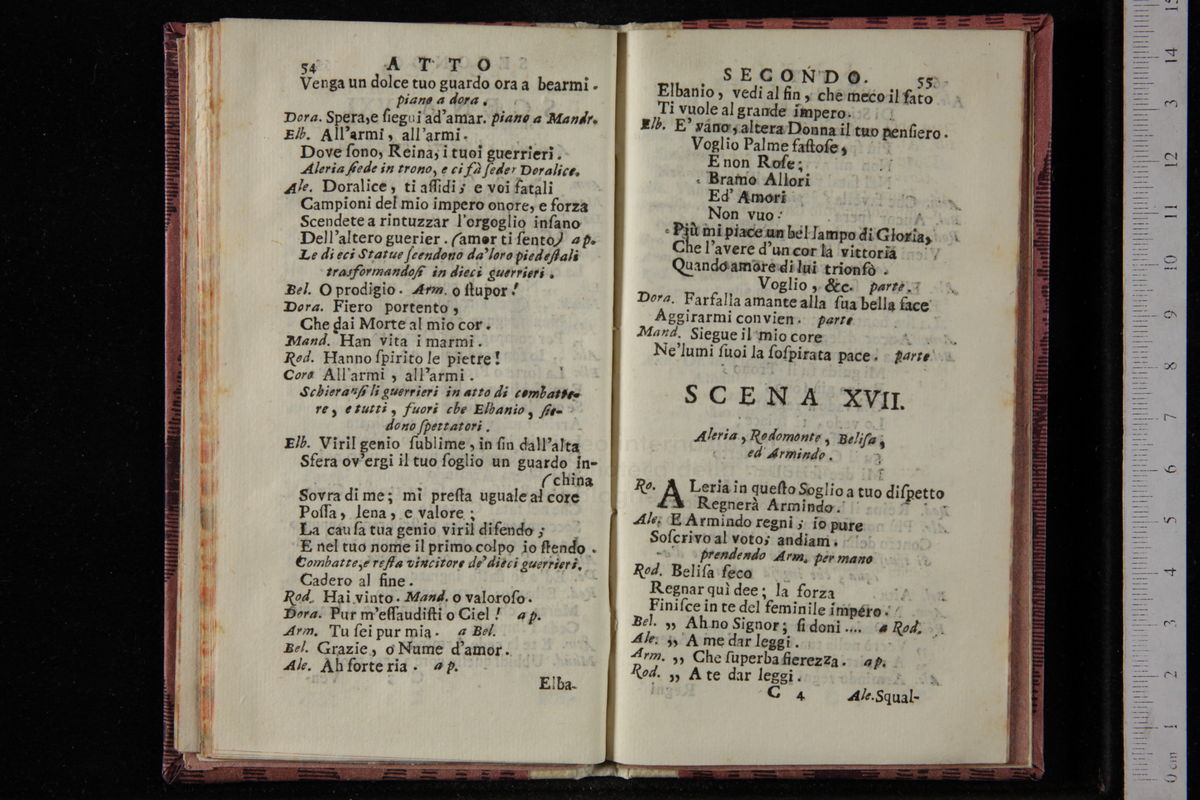 54 ATTO
Venga un dolce tuo guardo ora a bearmi.
piano a dora.
Dora. Spera, e ſiegui ad'amar. piano a Mandr.
Elb. All'armi, all'armi.
Dove ſono, Reina, i tuoi guerrieri.
Aleria ſiede in trono, e ci fà ſeder Doralice.
Ale. Doralice, ti aſſidi; e voi fatali
Campioni del mio impero onore, e forza
Scendete a rintuzzar l'orgoglio inſano
Dell'altero guerier. (amor ti ſento) a p.
Le dieci Statue ſcendono da'loro piedeſtali
trasformandoſi in dieci guerrieri.
Bel. O prodigio. Arm. o ſtupor!
Dora. Fiero portento,
Che dai Morte al mio cor.
Mand. Han vita i marmi.
Rod. Hanno ſpirito le pietre!
Coro All'armi, all'armi.
Schieranſi li guerrieri in atto di combatte-
re, e tutti, fuori che Elbanio, ſie-
dono ſpettatori.
Elb. Viril genio ſublime, in ſin dall'alta
Sfera ov'ergi il tuo ſoglio un guardo in-
(china
Sovra di me; mi preſta uguale al core
Poſſa, lena, e valore;
La cauſa tua genio viril difendo;
E nel tuo nome il primo colpo io ſtendo.
Combatte, e reſta vincitore de' dieci guerrieri.
Cadero al fine.
Rod. Hai vinto. Mand. o valoroſo.
Dora. Pur m'eſſaudiſti o Ciel! a p.
Arm. Tu ſei pur mia. a Bel.
Bel. Grazie, o Nume d'amor.
Ale. Ah ſorte ria. a p.
Elba-
SECONDO. 55
Elbanio, vedi al fin, che meco il fato
Ti vuole al grande impero.
Elb. E' vano, altera Donna il tuo penſiero.
Voglio Palme faſtoſe,
E non Roſe;
Bramo Allori
Ed' Amori
Non vuo:
Più mi piace un bel lampo di Gloria,
Che l'avere d'un cor la vittoria
Quando amore di lui trionfò.
Voglio, &c. parte.
Dora. Farfalla amante alla ſua bella face
Aggirarmi convien. parte
Mand. Siegue il mio core
Ne'lumi ſuoi la ſoſpirata pace. parte
SCENA XVII.
Aleria, Rodomonte, Beliſa,
ed Armindo.
Ro. ALeria in queſto Soglio a tuo diſpetto
Regnerà Armindo.
Ale. E Armindo regni; io pure
Soſcrivo al voto; andiam.
prendendo Arm. per mano
Rod. Beliſa ſeco
Regnar quì dee; la forza
Finiſce in te del feminile impéro.
Bel. „ Ah no Signor; ſi doni .... a Rod.
Ale. „ A me dar leggi.
Arm. „ Che ſuperba fierezza. a p.
Rod. „ A te dar leggi.
C 4 Ale. Squal-